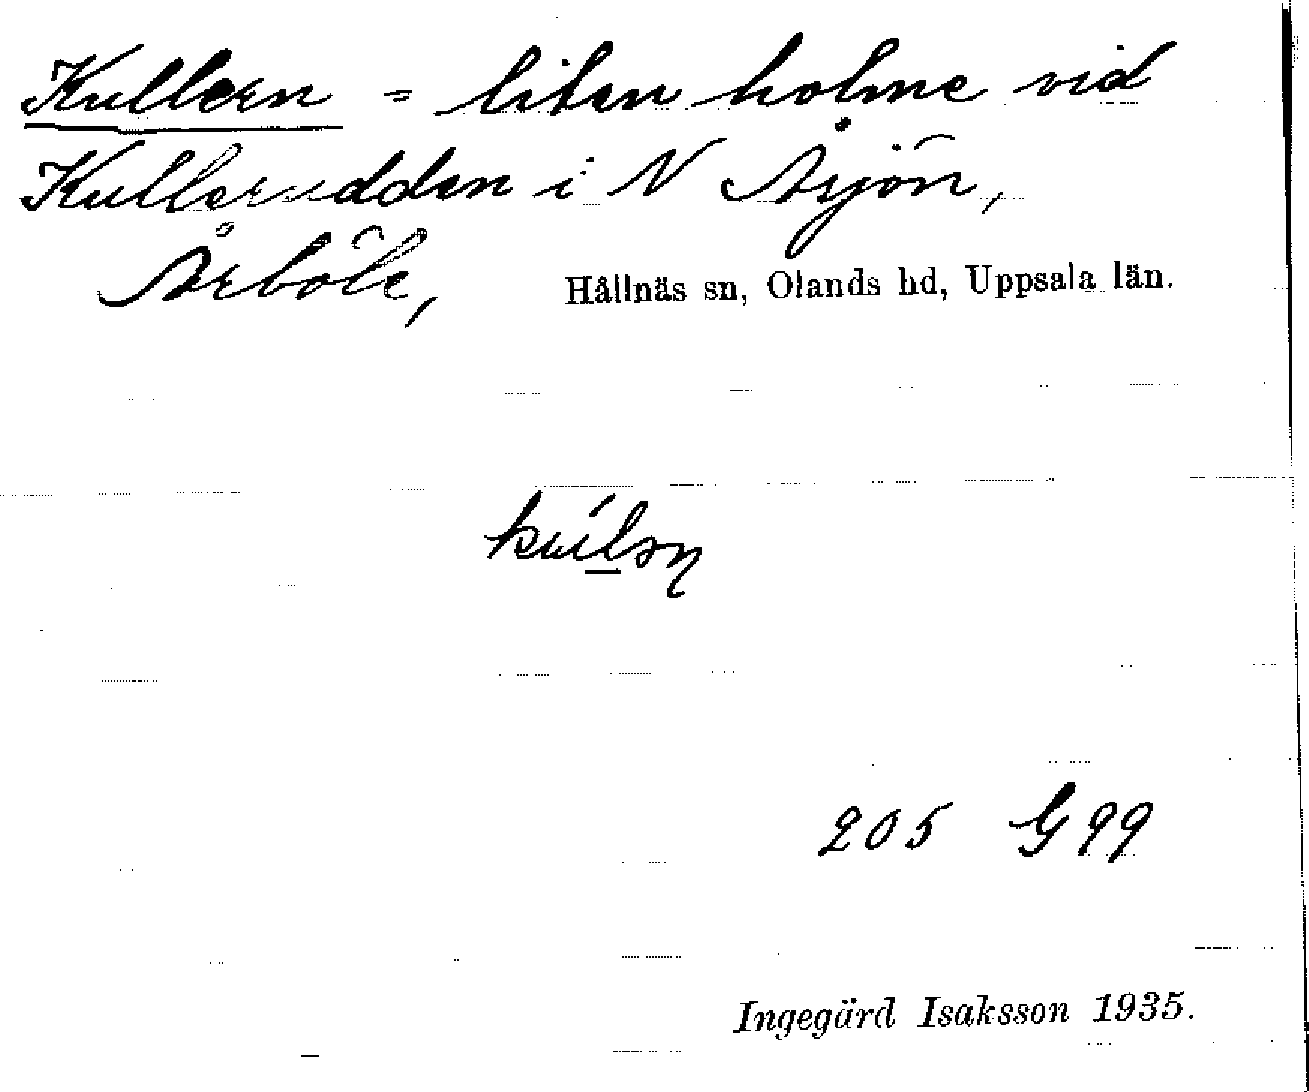 Kullern = liten holme vid
Kullerudden i N Åsjön,
Årböle, Hållnäs sn, Olands hd, Uppsala län.
205 G 99
Ingegärd Isaksson 1935.